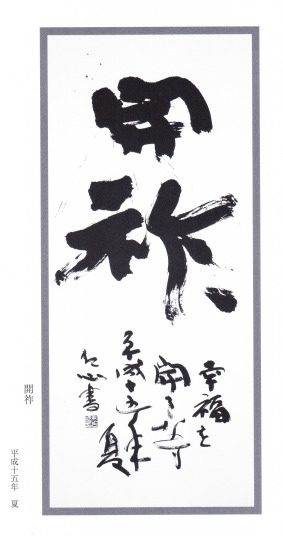 開祚
幸福を
開く
平成十五年
夏
書
開祚
平成十五年 夏